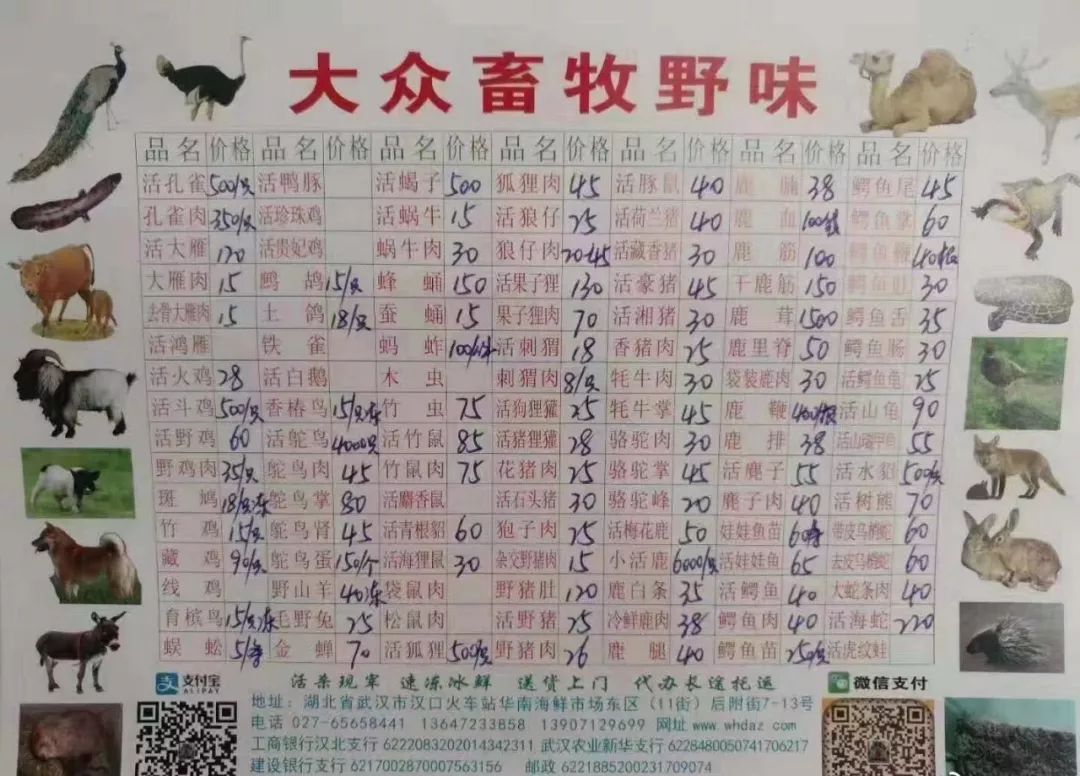 大众畜牧野味
品名 价格 品名 价格 品名 价格 品名 价格 品名 价格 品名 价格 品名 价格
活孔雀 500/只 活鸭豚 活蝎子 500 狐狸肉 45 活豚鼠 40 鹿 38 鳄鱼尾 45
孔雀肉 350/只 活珍珠鸡 活蜗牛 15 活狼仔 25 活荷兰猪 40 鹿血 鳄鱼掌 60
活大雁 120 活贵妃鸡 蜗牛肉 30 狼仔肉 20-45 活藏香猪 30 鹿筋 100 鳄鱼鞭
大雁肉 15 鹧鸪 15/只 蜂蛹 150 活果子狸 130 活豪猪 45 干鹿筋 150 鳄鱼肚 30
去骨大雁肉 15 土鸽 18/只 蚕蛹 15 果子狸肉 70 活湘猪 30 鹿茸 1500 鳄鱼舌 35
活鸿雁 铁雀 蚂蚱 活刺猬 18 香猪肉 25 鹿里脊 50 鳄鱼肠 30
活火鸡 28 活白鹅 木虫 刺猬肉 8/只 牦牛肉 30 袋装鹿肉 30 活鳄鱼龟 25
活斗鸡 500/只 香椿鸟 15/只冻 竹虫 75 活狗狸獾 25 牦牛掌 45 鹿鞭 活山龟 90
活野鸡 60 活鸵鸟 4000只 活竹鼠 85 活猪狸獾 28 骆驼肉 30 鹿排 38 55
野鸡肉 35/只 鸵鸟肉 45 竹鼠肉 75 花猪肉 25 骆驼掌 45 活麂子 55 活水貂 500/只
斑鸠 18/只冻 鸵鸟掌 80 活麝香鼠 活石头猪 30 骆驼峰 20 麂子肉 40 活树熊 70
竹鸡 15/只 鸵鸟肾 45 活青根貂 60 狍子肉 25 活梅花鹿 50 娃娃鱼苗 带皮乌梢蛇 60
藏鸡 90/只 鸵鸟蛋 150/个 活海狸鼠 30 杂交野猪肉 15 小活鹿 6000/只 活娃娃鱼 65 去皮乌梢蛇 60
线鸡 野山羊 40冻 袋鼠肉 野猪肚 120 鹿白条 35 活鳄鱼 40 大蛇条肉 40
育槟鸟 15/只冻 毛野兔 25 松鼠肉 活野猪 25 冷鲜鹿肉 38 鳄鱼肉 40 活海蛇 220
蜈蚣 金蝉 70 活狐狸 500/只 野猪肉 26 鹿腿 40 鳄鱼苗 250/只 活虎纹蛙
支付宝 ALIPAY 活杀现宰 速冻冰鲜 送货上门 代办长途托运 微信支付
地址：湖北省武汉市汉口火车站华南海鲜市场东区（11街）后附街7-13号
电话 027-65658441 13647233858 13907129699 网址 www.whdaz.com
工商银行汉北支行 6222083202014342311 武汉农业新华支行 6228480050741706217
建设银行支行 6217002870007563156 邮政 6221885200231709074